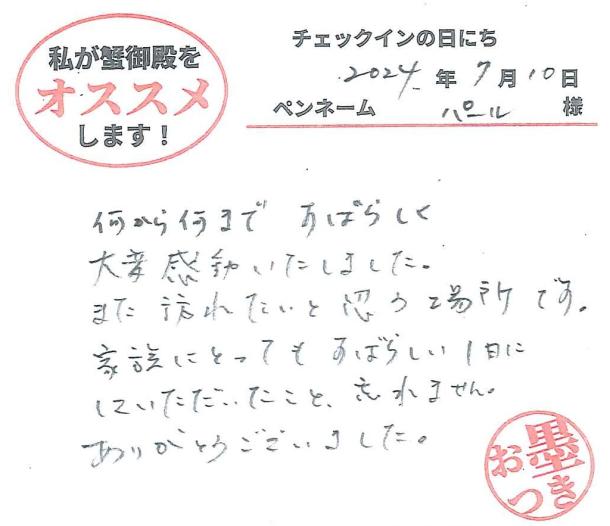 私が蟹御殿を
オススメ
します!
チェックインの日にち
2024年7月10日
ペンネーム パール 様
何から何まで すばらしく
大変感動いたしました。
また訪れたいと思う場所です。
家族にとってもすばらしい1日に
していただいたこと、忘れません。
ありがとうございました。
お墨
つき